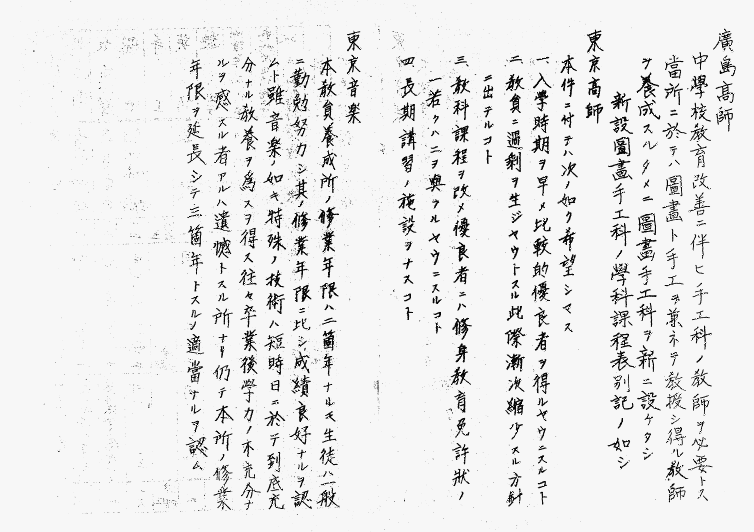 廣島高師
中學校教育改善ニ伴ヒ手工科ノ教師ヲ必要トス
當所ニ於テハ圖畫ト手工ヲ兼ネテ教授シ得ル教師
ヲ養成スルタメニ圖畫手工科ヲ新ニ設ケタシ
新設圖畫手工科ノ學科課程表別記ノ如シ
東京高師
本件ニ付テハ次ノ如ク希望シマス
一、入學時期ヲ早メ比較的優良者ヲ得ルヤウニスルコト
二、教員ニ過剰ヲ生ジヤウトスル此際漸次縮少スル方針
ニ出デルコト
三、教科課程ヲ改メ優良者ニハ修身教育免許狀ノ
一若クハ二ヲ與ヘルヤウニスルコト
四、長期講習ノ施設ヲナスコト
東京音樂
本教員養成所ノ修業年限ハ二箇年ナルモ生徒ハ一般
ニ勤勉努力シ其ノ修業年限ニ比シ成績良好ナルヲ認
ムト雖音樂ノ如キ特殊ノ技術ハ短時日ニ於テ到底充
分ナル教養ヲ爲スヲ得ス往々卒業後學力ノ不充分ナ
ルヲ感スル者アルハ遺憾トスル所ナリ仍テ本所ノ修業
年限ヲ延長シテ三箇年トスルヲ適當ナルヲ認ム